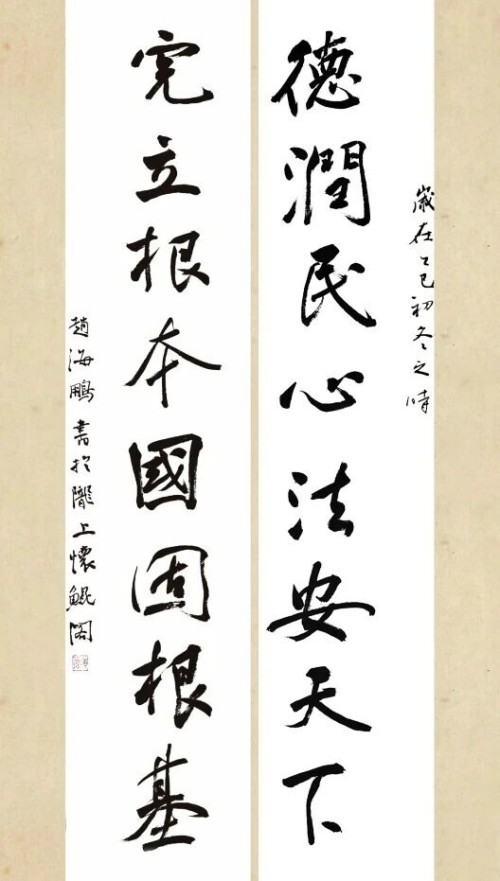 歲在乙巳初冬之時
德潤民心法安天下
宪立根本國固根基
趙海鵬書於隴上懷鯤閣